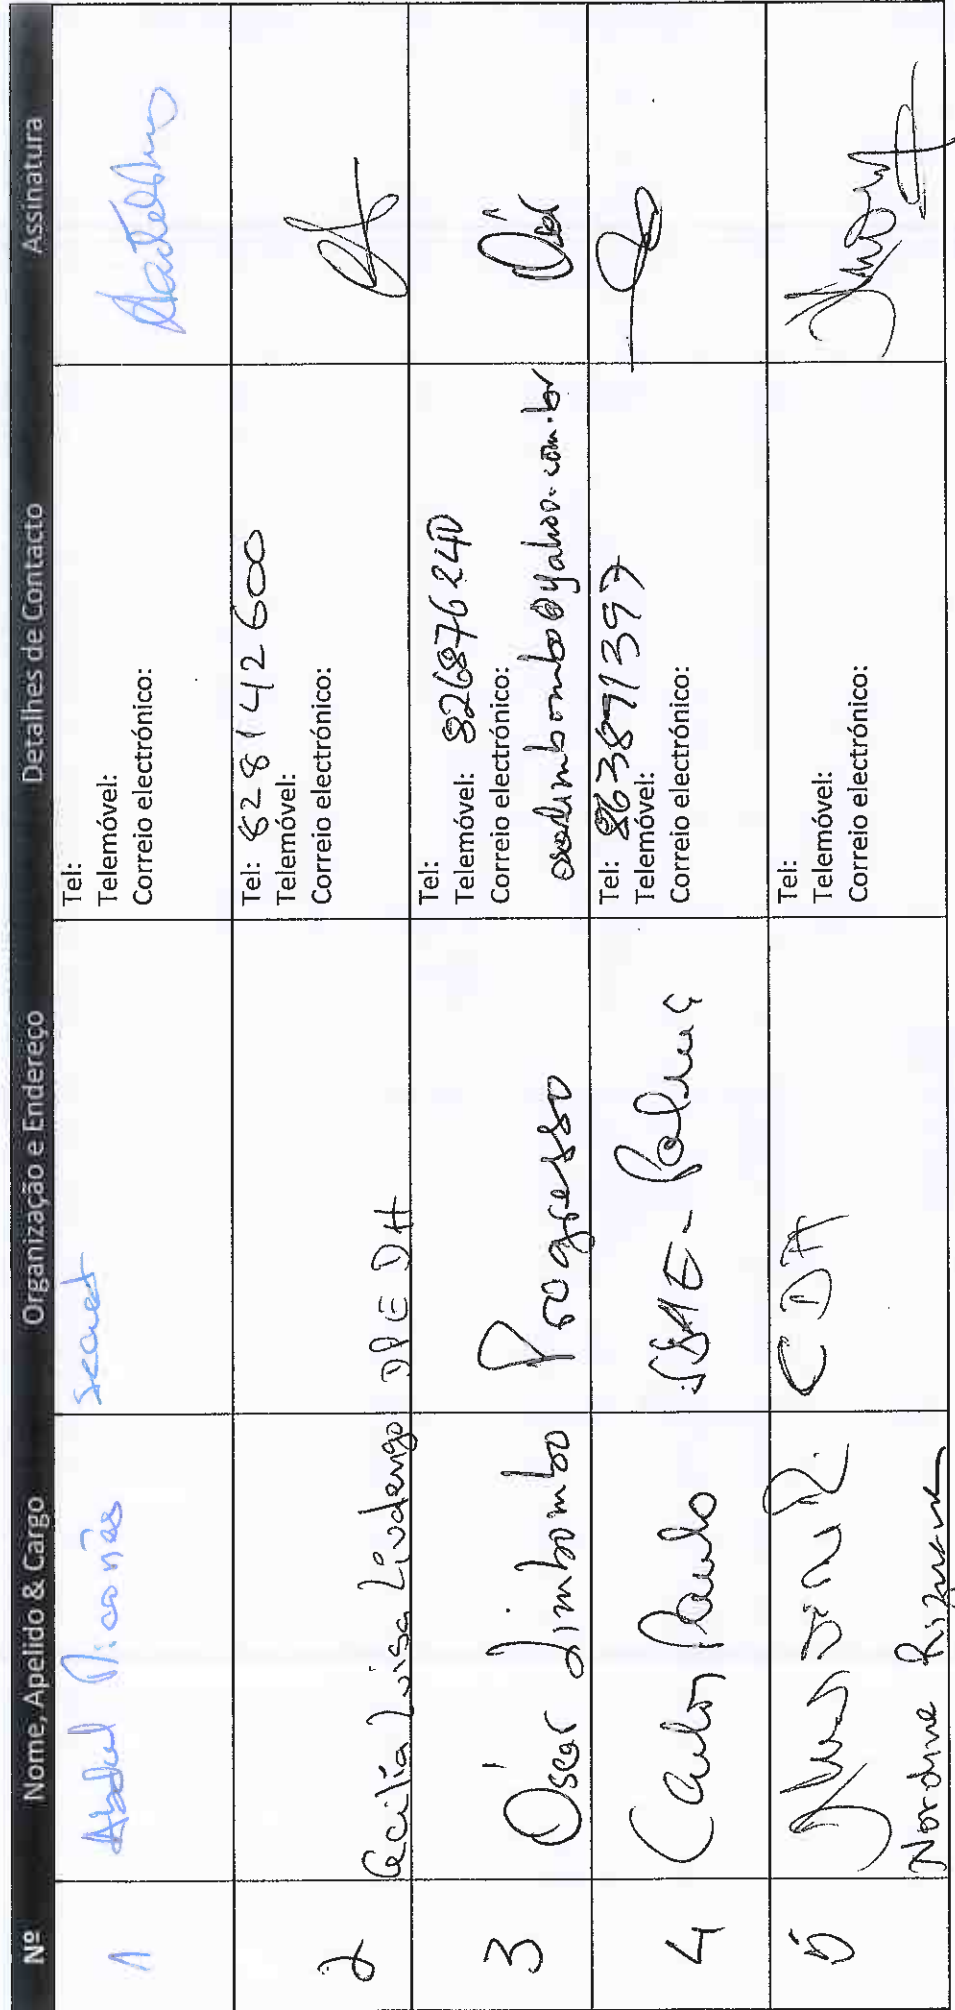 Nº Nome, Apelido & Cargo Organização e Endereço Detalhes de Contacto Assinatura
1 Abdul secret
Tel:
Telemóvel:
Correio electrónico:
2 Cecilia Luisa Livdengo DPEDH
Tel: 828142600
Telemóvel:
Correio electrónico:
3 Óscar Limbombo Progresso
Tel:
Telemóvel: 826876240
Correio electrónico:
oselimbombo@yahoo.com.br
4 Carlos Paulo
Tel: 863891397
Telemóvel:
Correio electrónico:
5 CDA
Nordine
Tel:
Telemóvel:
Correio electrónico: